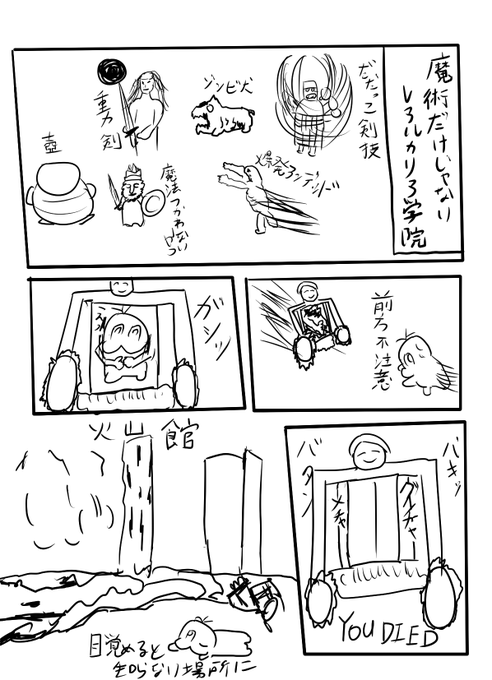 魔術だけじゃない
レアルカリア学院
だだっこ剣技
ゾンビ犬
重力剣
爆発アンデッド
魔法つかわないやつ
壺
前方不注意
ガシッ
バキッ
バタン
グチャー
メチャ
YOU DIED
火山館
目覚めると
知らない場所に